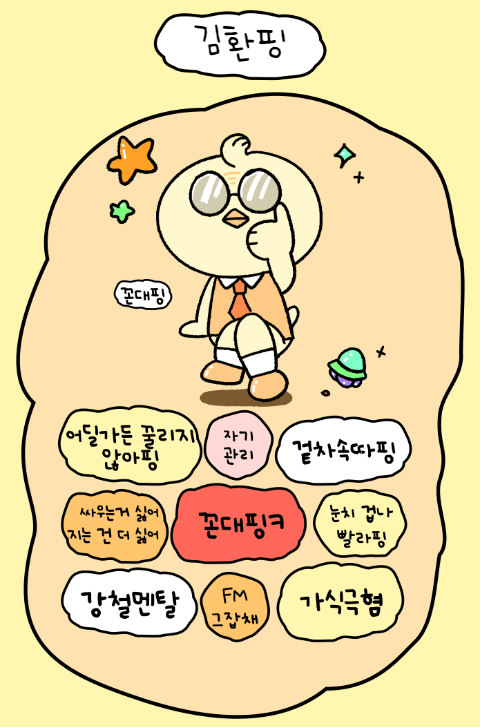 김환핑
꼰대핑
어딜가든 꿀리지
않아핑
자기
관리
겉차속따핑
싸우는거 싫어
지는 건 더 싫어
꼰대핑ㅋ
눈치 겁나
빨라핑
강철멘탈
FM
그잡채
가식극혐